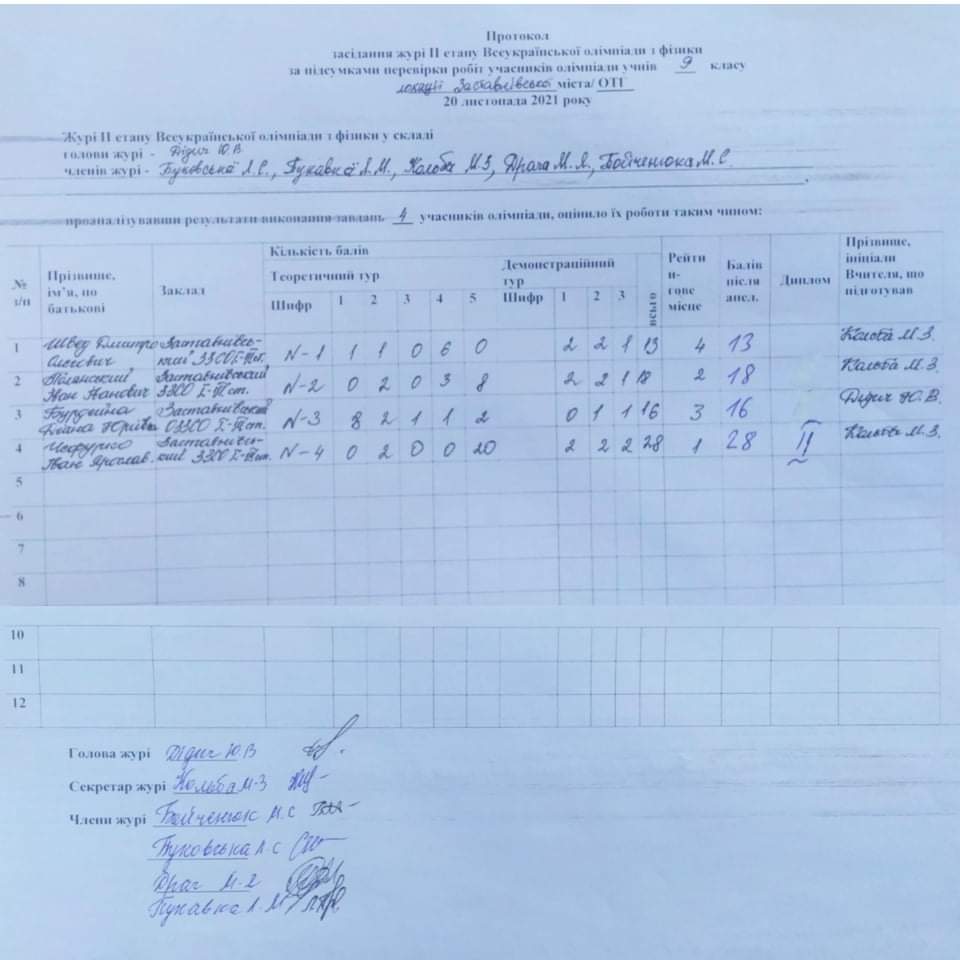 Протокол
засідання журі ІІ етапу Всеукраїнської олімпіади з фізики
за підсумками перевірки робіт учасників олімпіади учнів 9 класу
Заставнівської міста/ ОТГ
20 листопада 2021 року
Журі ІІ етапу Всеукраїнської олімпіади з фізики у складі
голови журі - Дідич Ю.В
членів журі - Буковської Л.С., Пукавка Л.М., Кольба М.З, Драга М.Я, Бойченюка М.С.
проаналізувавши результати виконання завдань 4 учасників олімпіади, оцінило їх роботи таким чином:
№ з/п Прізвище, ім’я, по батькові Заклад Кількість балів Рейти н- гове місце Балів після апел. Диплом Прізвище, ініціали Вчителя, що підготував
Теоретичний тур Демонстраційний тур всього
Шифр 1 2 3 4 5 Шифр 1 2 3
1 Швед Дмитро Заставнівсь- N-1 1 1 0 6 0 2 2 1 13 4 13 Кольба М.З.
кий ЗЗСО І-ІІІ ст.
2 Іван Іванович Заставнівський ЗЗСО І-ІІІ ст. N-2 0 2 0 3 8 2 2 1 18 2 18 Кольба М.З.
3 Діана Юріївна Заставнівський ОЗЗСО І-ІІІ ст. N-3 8 2 1 1 2 0 1 1 16 3 16 Дідич Ю.В.
4 Іван Ярослав. Заставнівсь- кий ЗЗСО І-ІІІ ст. N-4 0 2 0 0 20 2 2 2 28 1 28 ІІ Кольба М.З.
5
6
7
8
10
11
12
Голова журі Дідич Ю.В
Секретар журі Кольба М.З
Члени журі Бойченюк М.С
Буковська Л.С
Драг М.Я
Пукавка Л.М